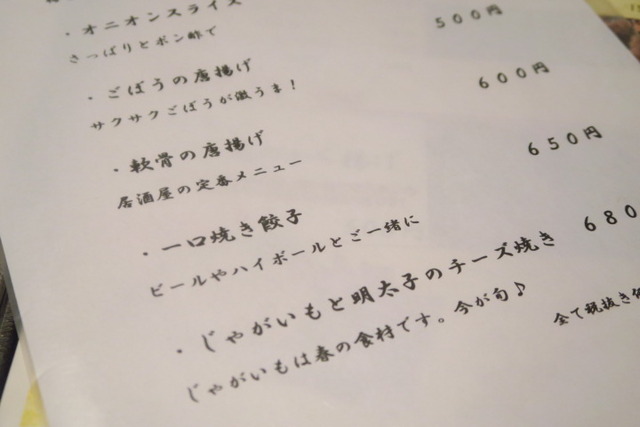 ・オニオンスライス 500円
さっぱりとポン酢で
・ごぼうの唐揚げ 600円
サクサクごぼうが激うま！
・軟骨の唐揚げ 650円
居酒屋の定番メニュー
・一口焼き餃子 680
ビールやハイボールとご一緒に
・じゃがいもと明太子のチーズ焼き
じゃがいもは春の食材です。今が旬♪
全て税抜き